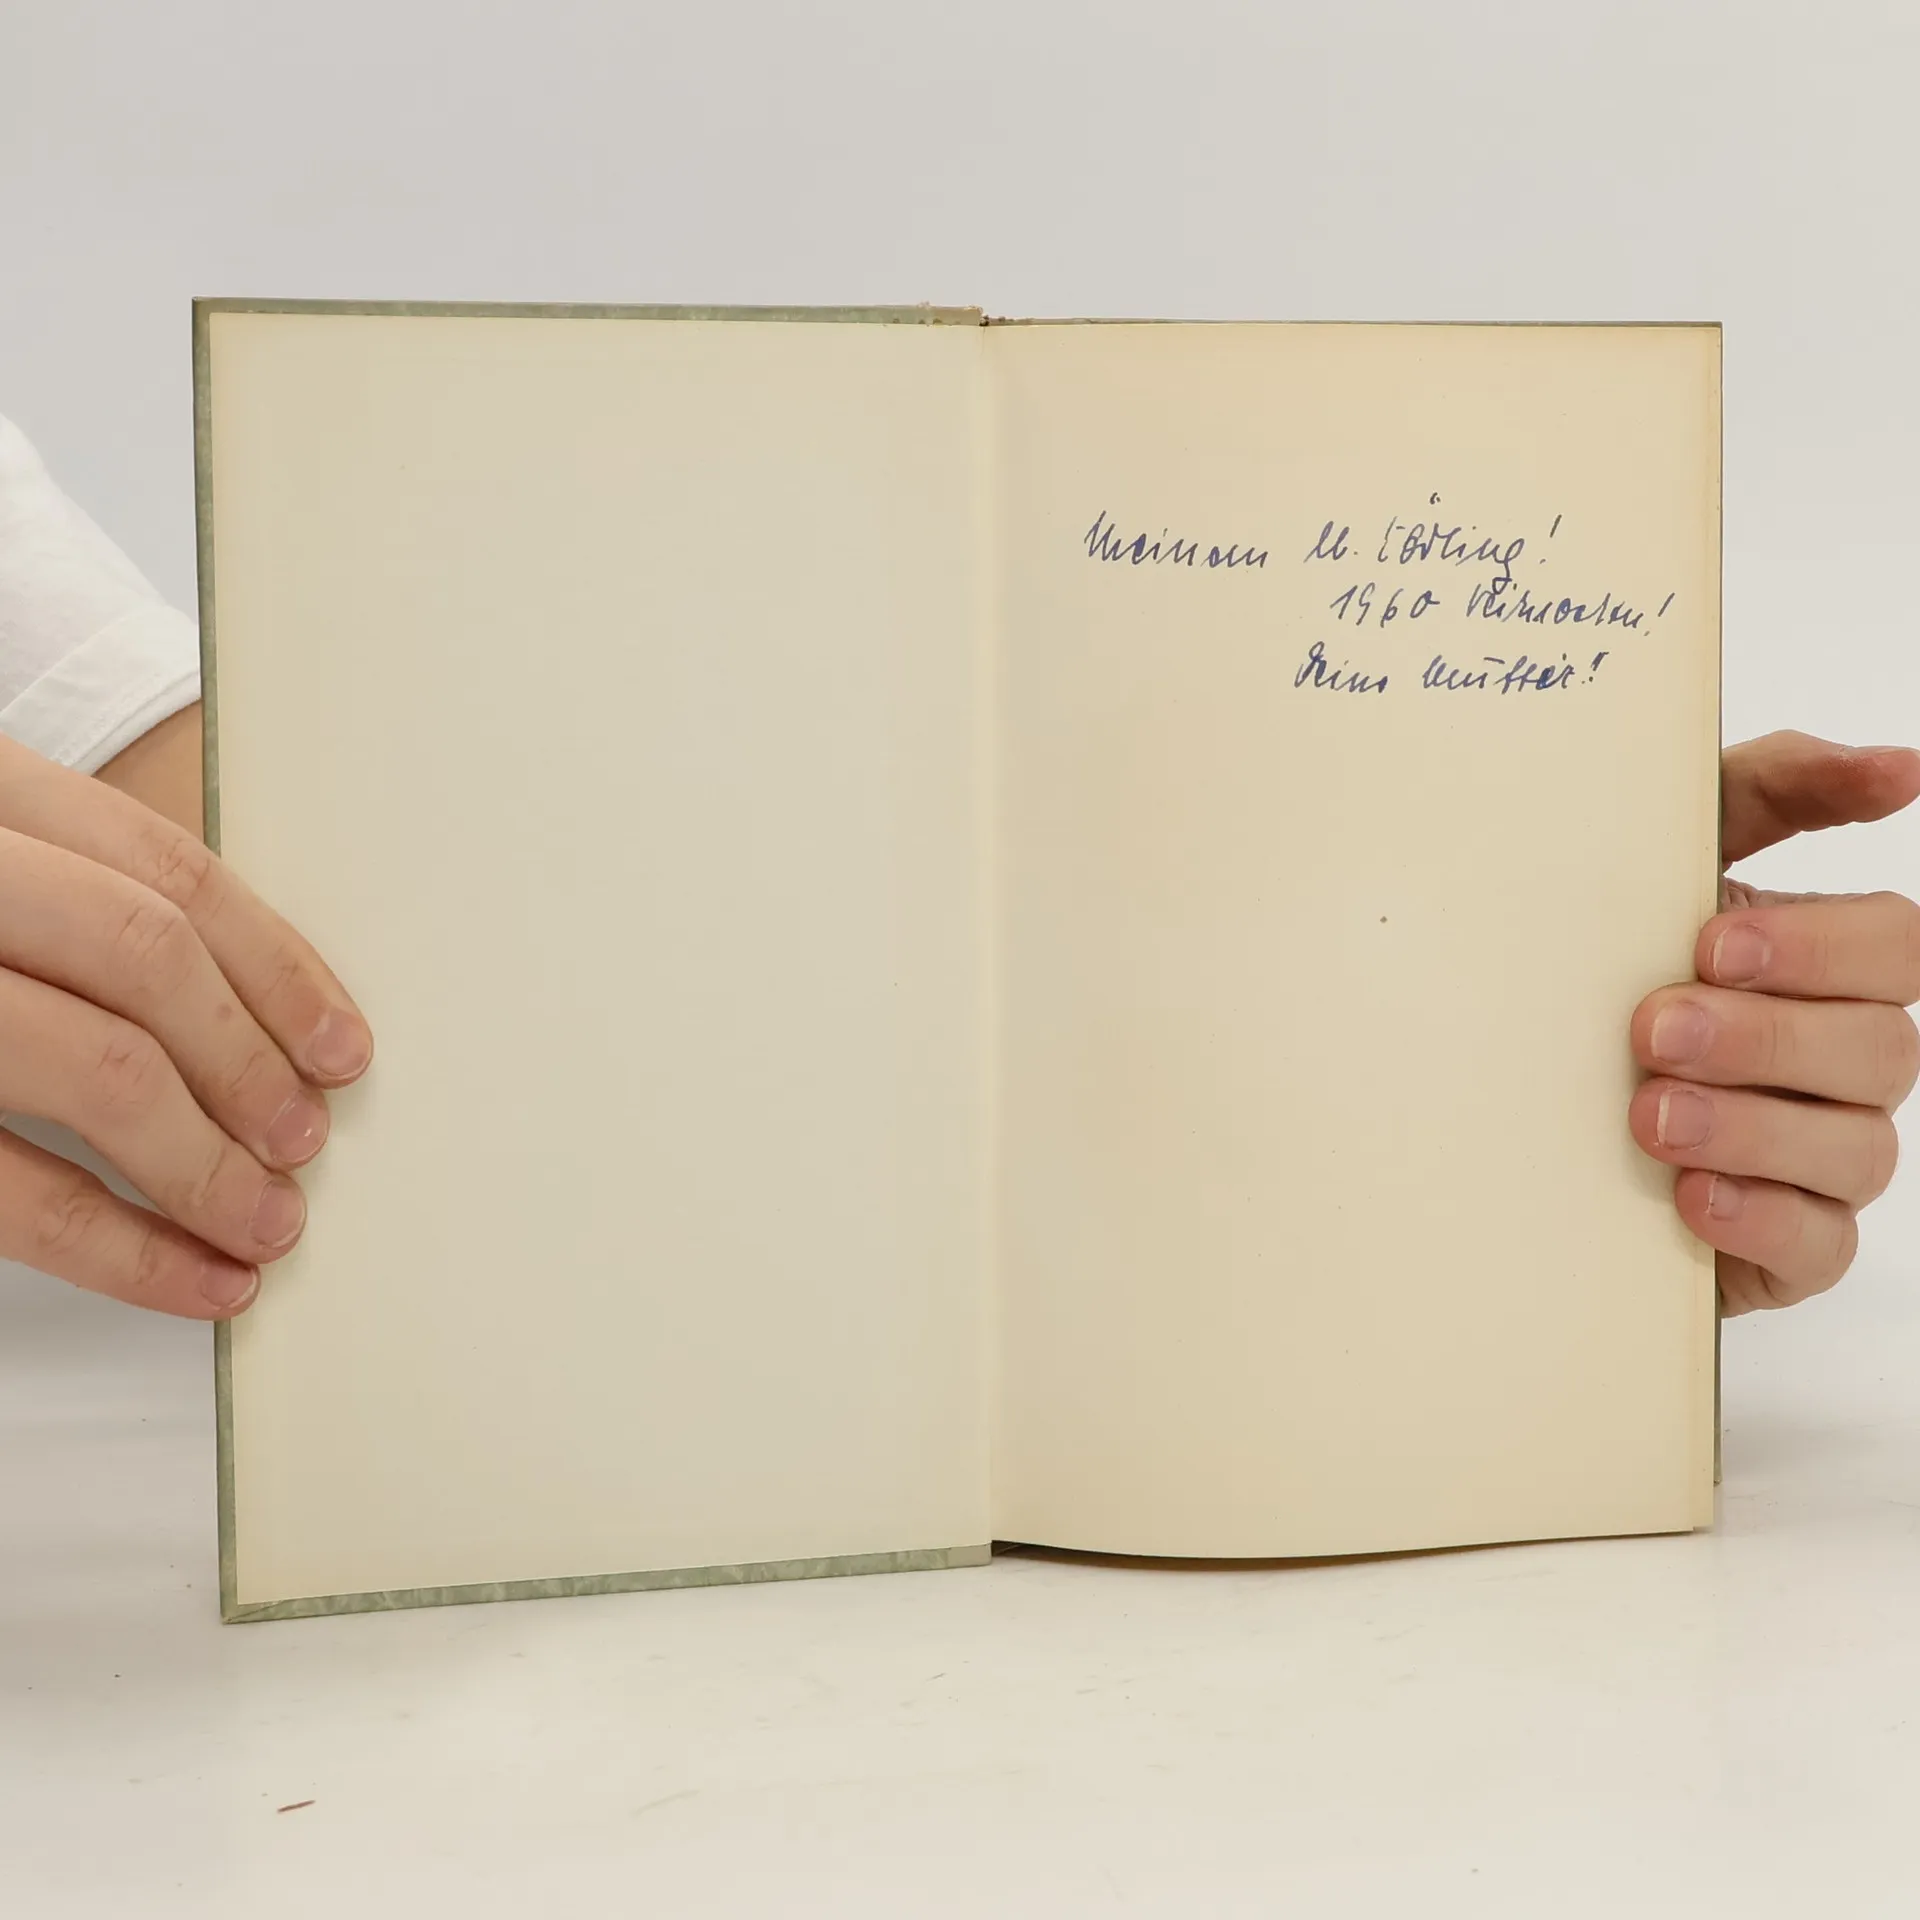 Meinem lb.
1960 Weihnachten!
Deine Mutter!!